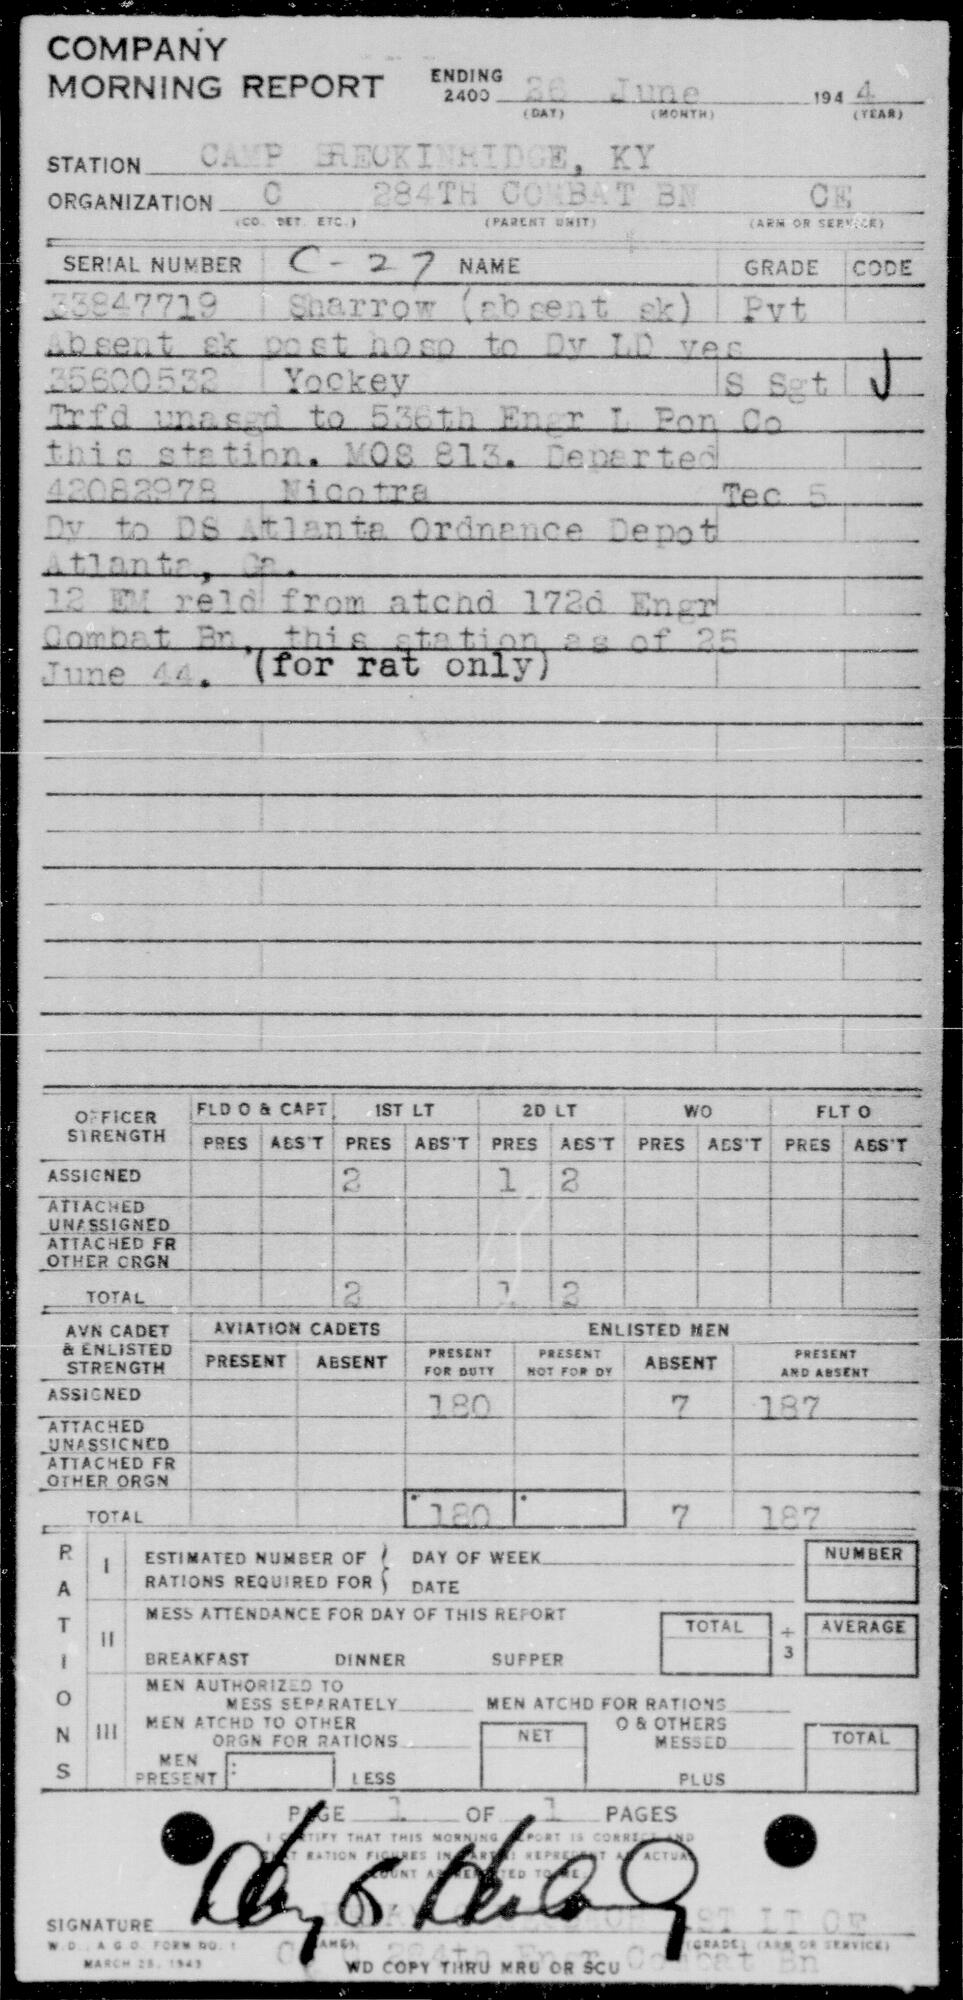 COMPANY
MORNING REPORT ENDING 2400 26 June 194 4
(DAY) (MONTH) (YEAR)
STATION CAMP BRECKINRIDGE, KY
ORGANIZATION C 284TH COMBAT BN CE
(CO. DET. ETC.) (PARENT UNIT) (ARM OR SERVICE)
SERIAL NUMBER C-27 NAME GRADE CODE
33847719 Sharrow (absent sk) Pvt
Absent sk post hosp to Dy LD yes
35600532 Yockey S Sgt J
Trfd unasgd to 536th Engr L Pon Co
this station. MOS 813. Departed
42082978 Nicotra Tec 5
Dy to DS Atlanta Ordnance Depot
Atlanta, Ga.
12 EM reld from atchd 172d Engr
Combat Bn, this station as of 25
June 44. (for rat only)
OFFICER STRENGTH FLD O & CAPT 1ST LT 2D LT WO FLT O
PRES ABS'T PRES ABS'T PRES ABS'T PRES ABS'T PRES ABS'T
ASSIGNED 2 1 2
ATTACHED UNASSIGNED
ATTACHED FR OTHER ORGN
TOTAL 2 1 2
AVN CADET & ENLISTED STRENGTH AVIATION CADETS ENLISTED MEN
PRESENT ABSENT PRESENT FOR DUTY PRESENT NOT FOR DY ABSENT PRESENT AND ABSENT
ASSIGNED 180 7 187
ATTACHED UNASSIGNED
ATTACHED FR OTHER ORGN
TOTAL 180 7 187
RATIONS
I ESTIMATED NUMBER OF RATIONS REQUIRED FOR DAY OF WEEK NUMBER
DATE
II MESS ATTENDANCE FOR DAY OF THIS REPORT TOTAL ÷ 3 AVERAGE
BREAKFAST DINNER SUPPER
III MEN AUTHORIZED TO MESS SEPARATELY MEN ATCHD FOR RATIONS
MEN ATCHD TO OTHER ORGN FOR RATIONS NET O & OTHERS MESSED TOTAL
MEN PRESENT LESS PLUS
PAGE 1 OF 1 PAGES
I CERTIFY THAT THIS MORNING REPORT IS CORRECT AND
THAT RATION FIGURES IN PART III REPRESENT AN ACTUAL
COUNT AS REPORTED TO ME
SIGNATURE 1ST LT CE
W.D., A.G.O. FORM NO. 1 (NAME) (GRADE) (ARM OR SERVICE)
284th Engr Combat Bn
MARCH 25, 1943 WD COPY THRU MRU OR SCU